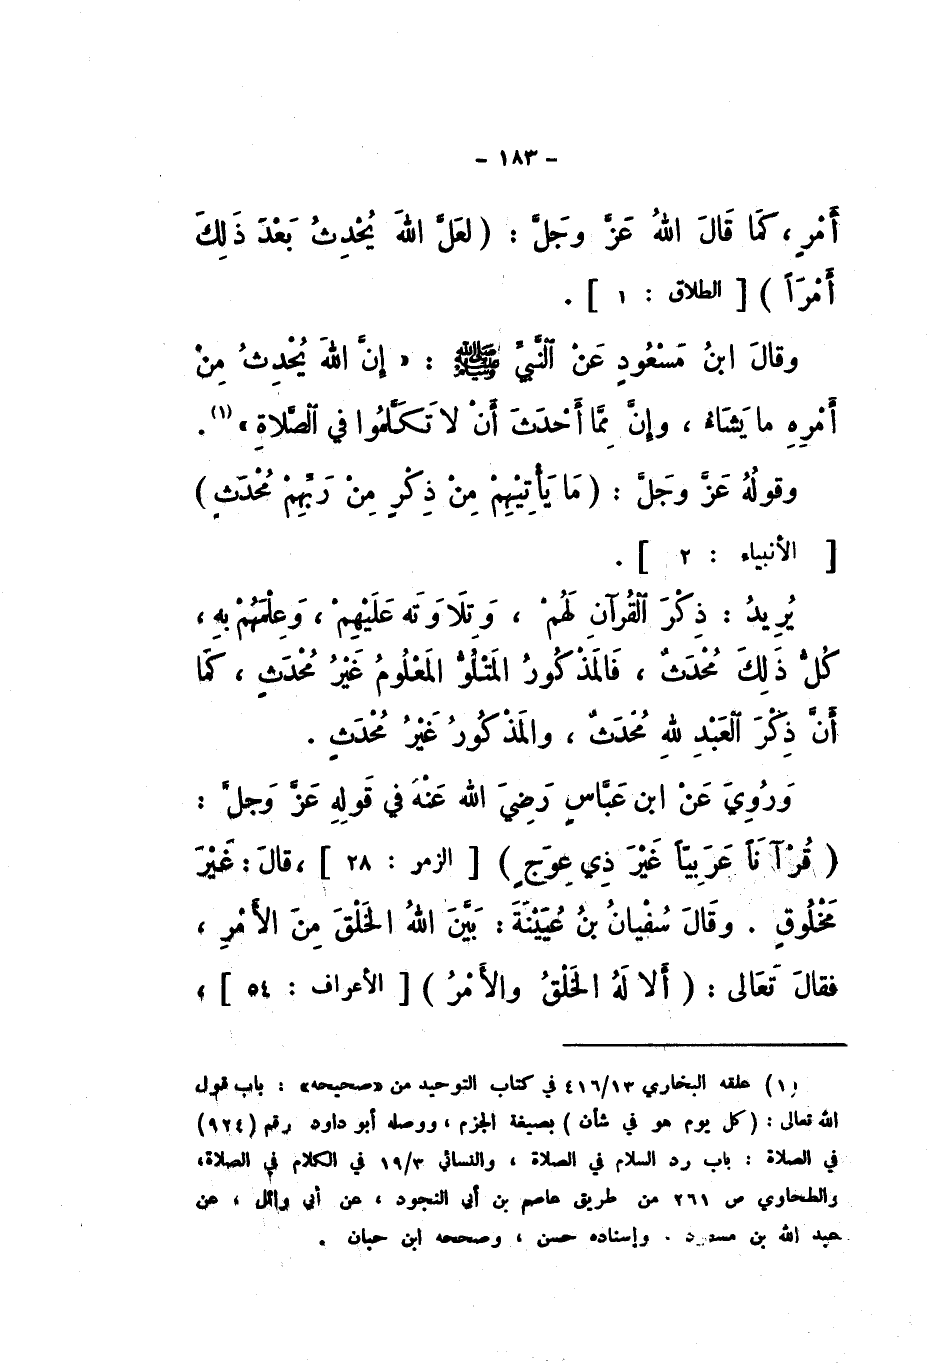 - ١٨٣ -
أَمْرٍ ، كَمَا قَالَ اللهُ عَزَّ وجَلَّ : ( لَعَلَّ اللهَ يُحْدِثُ بَعْدَ ذَلِكَ
أَمْرَاً ) [ الطلاق : ١ ] .
وقالَ ابنُ مَسْعُودٍ عَنْ النَّبيِّ ﷺ : « إِنَّ اللهَ يُحْدِثُ مِنْ
أَمْرِهِ ما يَشَاءُ ، وإِنَّ مِمَّا أَحْدَثَ أَنْ لا تَكَلَّمُوا في الصَّلاةِ » (١) .
وقولُهُ عَزَّ وجَلَّ : ( مَا يَأْتِيْهِمْ مِنْ ذِكْرٍ مِنْ رَبِّهِمْ مُحْدَثٍ )
[ الأنبياء : ٢ ] .
يُرِيدُ : ذِكْرَ القُرآنِ لَهُمْ ، وَتِلَاوَتَه عَلَيْهِمْ ، وَعِلْمَهُمْ بهِ ،
كُلُّ ذَلِكَ مُحْدَثٌ ، فَالمَذْكُورُ المَتْلُوُّ المَعْلُومُ غَيْرُ مُحْدَثٍ ، كَمَا
أَنَّ ذِكْرَ العَبْدِ للهِ مُحْدَثٌ ، والمَذْكُورُ غَيْرُ مُحْدَثٍ .
وَرُوِيَ عَنْ ابن عَبَّاسٍ رَضِيَ الله عَنْهُ في قَولِهِ عَزَّ وَجلَّ :
( قُرْآنَاً عَرَبِيَّاً غَيْرَ ذِي عِوَجٍ ) [ الزمر : ٢٨ ] ، قالَ : غَيْرَ
مَخْلُوقٍ . وقَالَ سُفْيانُ بنُ عُيَيْنَةَ : بَيَّنَ اللهُ الخَلْقَ مِنَ الأَمْرِ ،
فقالَ تَعَالى : ( أَلا لَهُ الخَلْقُ والأَمْرُ ) [ الأعراف : ٥٤ ] ،
(١) علقه البخاري ٤١٦/١٣ في كتاب التوحيد من «صحيحه» : باب قول
الله تعالى : ( كل يوم هو في شأن ) بصيغة الجزم ، ووصله أبو داود رقم (٩٢٤)
في الصلاة : باب رد السلام في الصلاة ، والنسائي ١٩/٣ في الكلام في الصلاة،
والطحاوي ص ٢٦١ من طريق عاصم بن أبي النجود ، عن أبي وائل ، عن
عبد الله بن مسعود . وإسناده حسن ، وصححه ابن حبان .